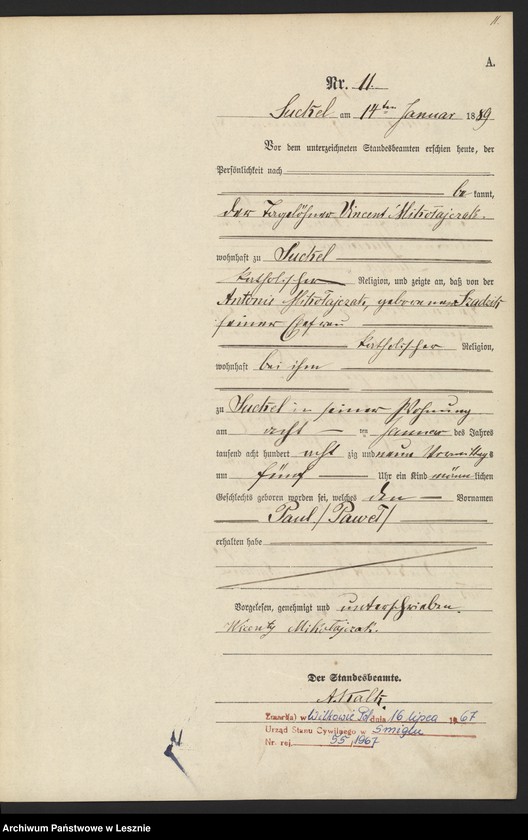 11.
A.
Nr. 11.
Suckel am 14ten Januar 1889
Vor dem unterzeichneten Standesbeamten erschien heute, der
Persönlichkeit nach
be kannt,
der Tagelöhner Vincent Mikołajczak.
wohnhaft zu Suckel
katholischer Religion, und zeigte an, daß von der
Antonie Mikołajczak, geborenen
seiner Ehefrau
katholischer Religion,
wohnhaft bei ihm
zu Suckel in seiner Wohnung
am acht ten Januar des Jahres
tausend acht hundert acht zig und neun Vormittags
um fünf Uhr ein Kind männlichen
Geschlechts geboren worden sei, welches den Vornamen
Paul /Paweł/
erhalten habe
Vorgelesen, genehmigt und unterschrieben.
Mikołajczak.
Der Standesbeamte.
A. Kalk.
Zmarł(a) w Wilkowie Pol dnia 16 lipca 1967
Urząd Stanu Cywilnego w Śmiglu
Nr. rej. 55/1967
Archiwum Państwowe w Lesznie